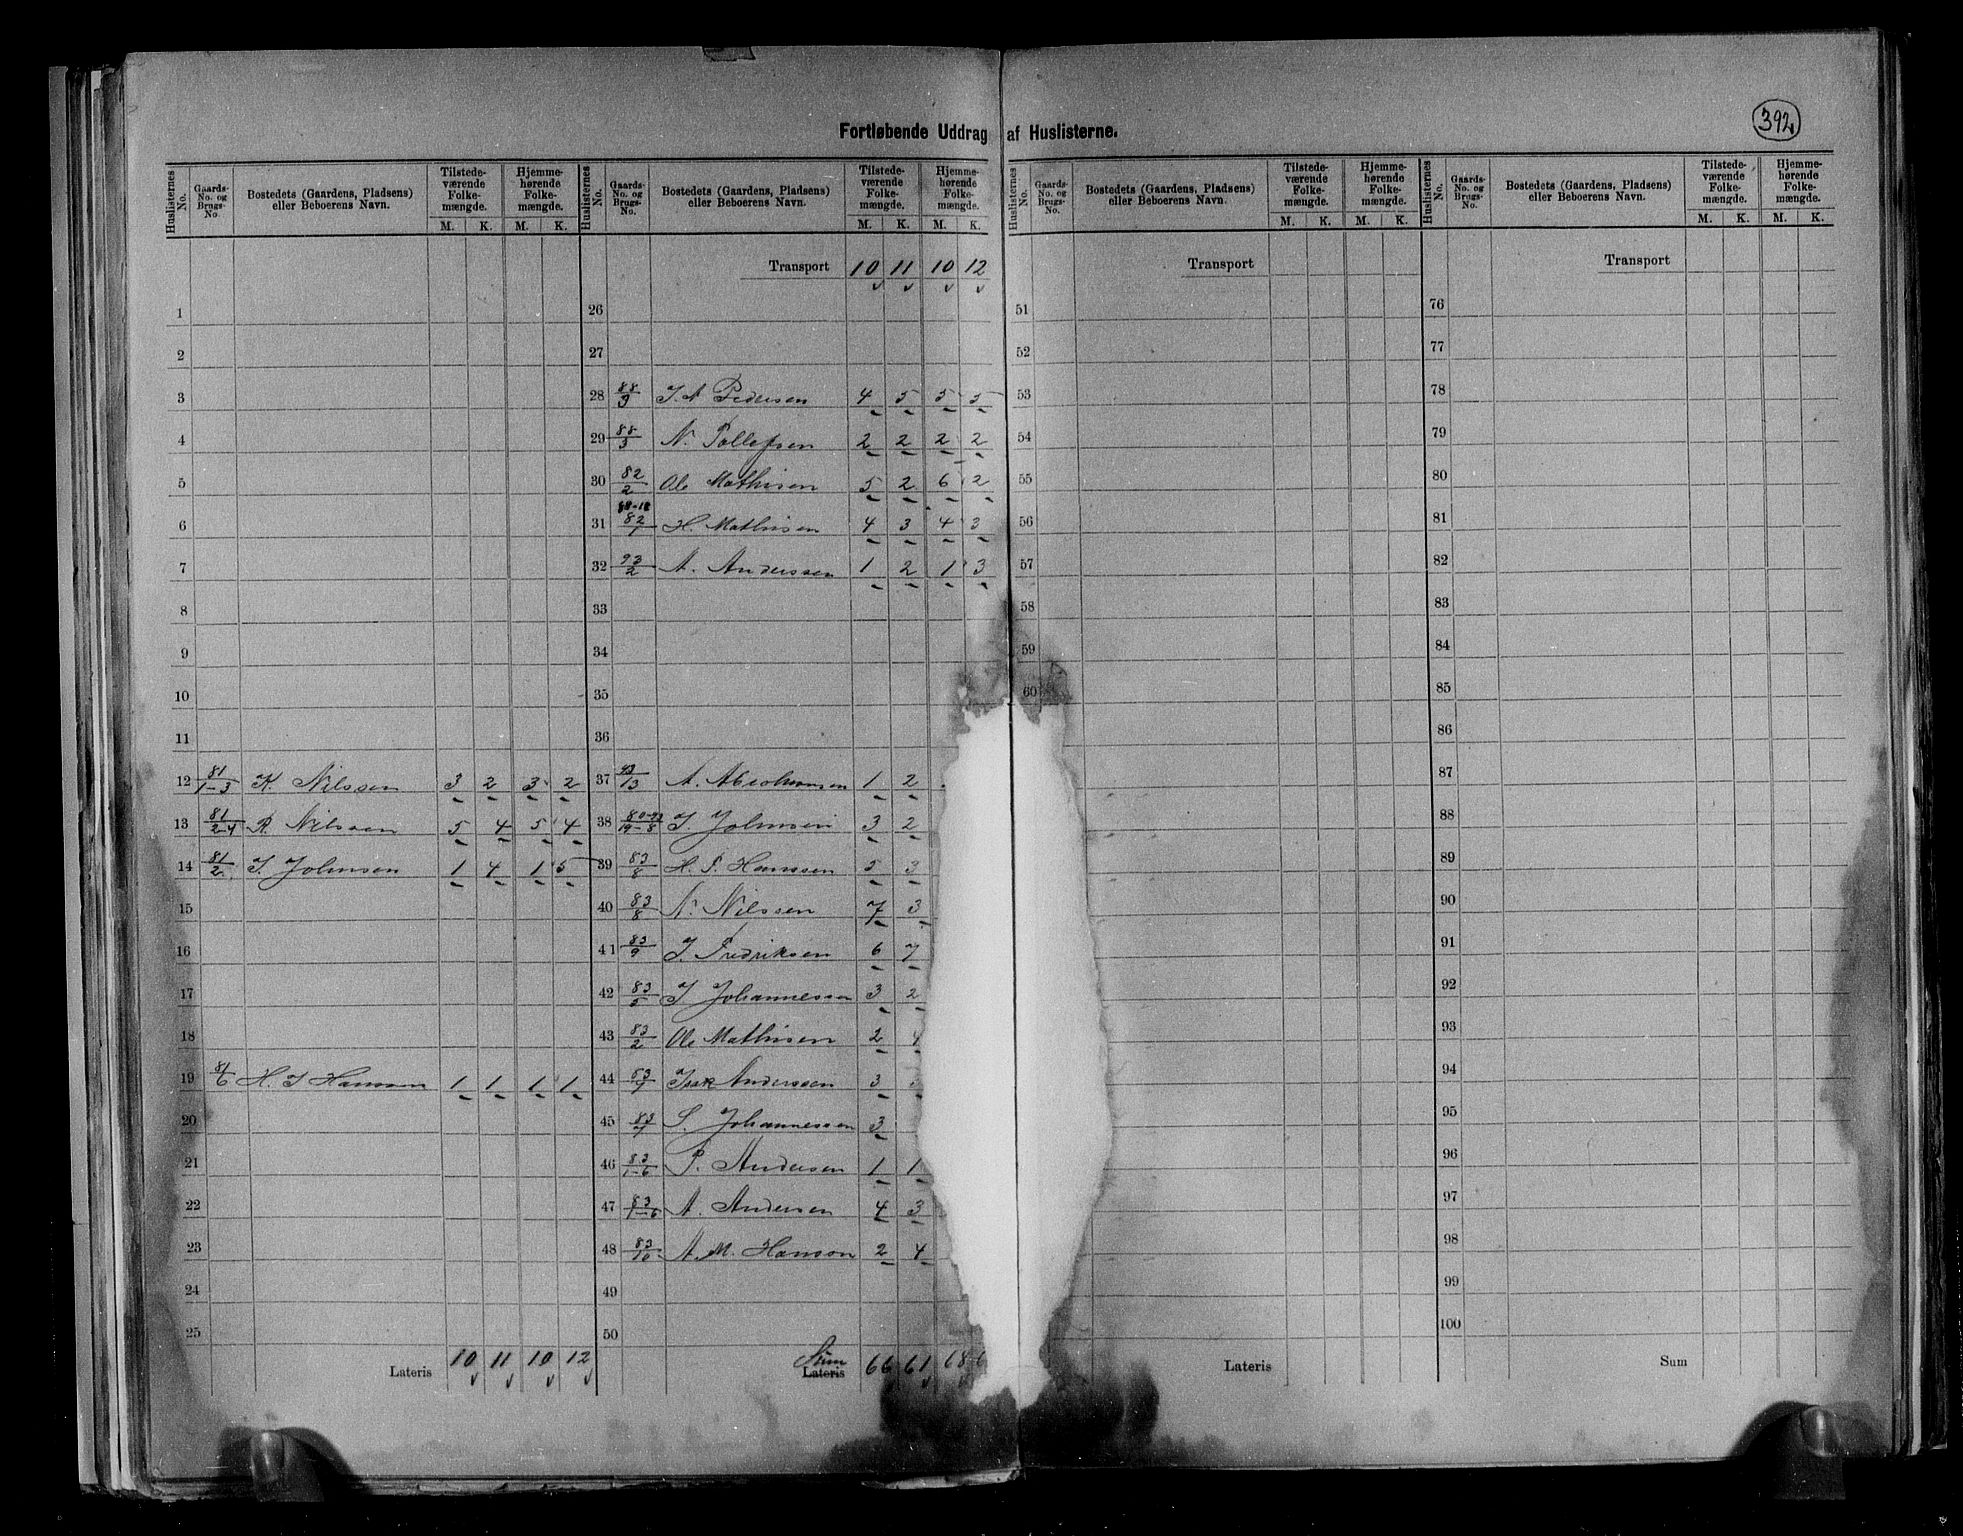 392
Fortløbende Uddrag af Huslisterne.
Huslisternes No. Gaards-No. og Brugs-No. Bostedets (Gaardens, Pladsens) eller Beboerens Navn. Tilstedeværende Folkemængde. M. K. Hjemmehørende Folkemængde. M. K.
1
2
3
4
5
6
7
8
9
10
11
12 81/1-3 K. Nilssen 3 2 3 2
13 81/2-4 R. Nilssen 5 4 5 4
14 81/2 I. Johnsen 1 4 1 5
15
16
17
18
19 81/6 H. I Hansen 1 1 1 1
20
21
22
23
24
25
Lateris 10 11 10 12
Huslisternes No. Gaards-No. og Brugs-No. Bostedets (Gaardens, Pladsens) eller Beboerens Navn. Tilstedeværende Folkemængde. M. K. Hjemmehørende Folkemængde. M. K.
Transport 10 11 10 12
26
27
28 88/9 I. A Pedersen 4 5 5 5
29 88/3 N. Tollefsen 2 2 2 2
30 82/2 Ole Mathisen 5 2 6 2
31 82/1 H. Mathisen 4 3 4 3
32 93/2 A. Anderssen 1 2 1 3
33
34
35
36
37 93/13 A. Abrahamsen 1 2
38 I. Johnsen 3 2
39 83/8 H. P. Hanssen 5 3
40 83/8 N. Nilssen 7 3
41 83/9 I. Fredriksen 6 7
42 83/5 I Johannessen 3 2
43 83/2 Ole Mathisen 2 4
44 Isak Anderssen 3
45 83/7 S. Johannessen 3
46 83/1-6 P. Andersen 1 1
47 83/1-6 A. Andersen 4 3
48 83/10 A. M. Hanson 2 4
49
50
Sum Lateris 66 61 68 6
Huslisternes No. Gaards-No. og Brugs-No. Bostedets (Gaardens, Pladsens) eller Beboerens Navn. Tilstedeværende Folkemængde. M. K. Hjemmehørende Folkemængde. M. K.
Transport
51
52
53
54
55
56
57
58
59
60
Lateris
Huslisternes No. Gaards-No. og Brugs-No. Bostedets (Gaardens, Pladsens) eller Beboerens Navn. Tilstedeværende Folkemængde. M. K. Hjemmehørende Folkemængde. M. K.
Transport
76
77
78
79
80
81
82
83
84
85
86
87
88
89
90
91
92
93
94
95
96
97
98
99
100
Sum